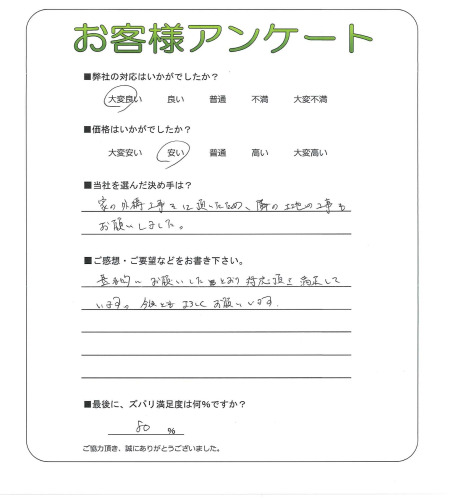 お客様アンケート
■弊社の対応はいかがでしたか?
大変良い 良い 普通 不満 大変不満
■価格はいかがでしたか?
大変安い 安い 普通 高い 大変高い
■当社を選んだ決め手は?
家の外構工事を に頂いたため、隣の土地の工事も
お願いしました。
■ご感想・ご要望などをお書き下さい。
基本的に お願いしたとおり 対応頂き 満足して
います。今後とも よろしく お願いします.
■最後に、ズバリ満足度は何%ですか?
80 %
ご協力頂き、誠にありがとうございました。